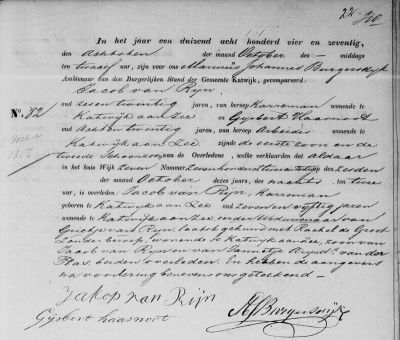 In het jaar een duizend acht honderd vier en zeventig,
den Achtsten der maand October des middags
ten twaalf ure, zijn voor ons Marinus Johannes Burgersdijk
Ambtenaar van den Burgerlijken Stand der Gemeente Katwijk, gecompareerd:
Jacob van Rijn,
No. 82
oud zesentwintig jaren, van beroep Karreman wonende te
Katwijk aan Zee en Gijsbert Haasnoot
oud Achtentwintig jaren, van beroep Arbeider wonende te
Katwijk aan Zee zijnde de eerste zoon en de
tweede Schoonzoon de Overledene, welke verklaarden dat aldaar
in het huis Wijk Zeven Nummer den Zesden
der maand October dezes jaars, des nachts ten twee
ure, is overleden: Jacob van Rijn, Karreman,
geboren te Katwijk aan Zee oud zeven en vijftig jaren
wonende te Katwijk aan Zee eerder Weduwenaar van
Grietje van Rijn, laatst gehuwd met Rachel de Groot
zonder beroep, wonende te Katwijk aan Zee, zoon van
Jacob van Rijn en van Jannetje van der
Plas, beiden overleden. En hebben de aangevers
na voorlezing benevens ons geteekend
Jakop van Rijn
Gijsbert haasnoot
MJBurgersdijk